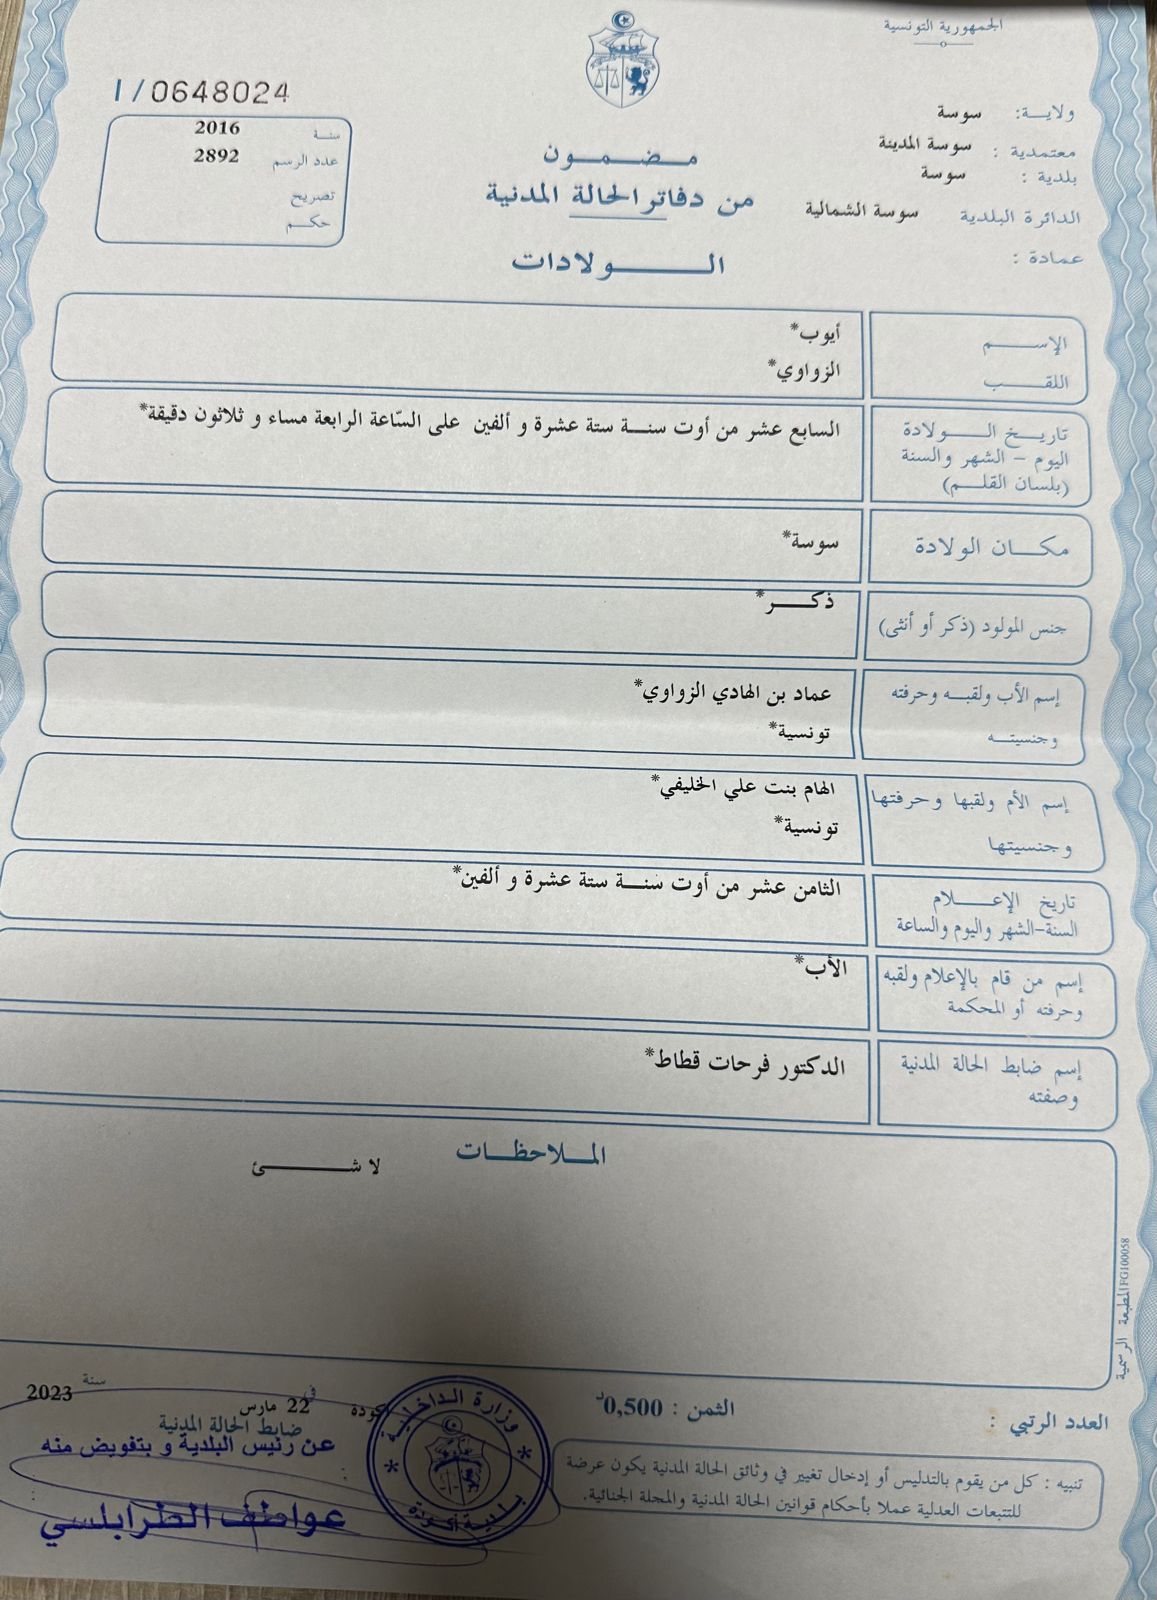 الجمهورية التونسية
I/0648024
ولايـــة: سوسة
معتمدية : سوسة المدينة
بلدية : سوسة
الدائرة البلدية سوسة الشمالية
عمادة :
سنة 2016
عدد الرسم 2892
تصريح
حكـــم
مـضـمـــون
من دفاتر الحالة المدنية
الـــــولادات
الإســـــم أيوب*
اللقـــــب الزواوي*
تاريـخ الـــــولادة السابع عشر من أوت سنـــة ستة عشرة و ألفين على السّاعة الرابعة مساء و ثلاثون دقيقة*
اليوم – الشهر والسنة
(بلسان القلـــم)
مكـــان الولادة سوسة*
جنس المولود (ذكر أو أنثى) ذكـــــر*
إسم الأب ولقبـــه وحرفته عماد بن الهادي الزواوي*
وجنسيتـــه تونسية*
إسم الأم ولقبها وحرفتها الهام بنت علي الخليفي*
وجنسيتها تونسية*
تاريخ الإعـــــلام الثامن عشر من أوت سنـــة ستة عشرة و ألفين*
السنة-الشهر واليوم والساعة
إسم من قام بالإعلام ولقبه الأب*
وحرفته أو المحكمة
إسم ضابط الحالة المدنية الدكتور فرحات قطاط*
وصفته
المـــلاحظـــات
لا شـــــئ
المطبعة الرسمية FG100058
العدد الرتبي :
الثمن : 0,500د
أكودة في 22 مارس سنة 2023
ضابط الحالة المدنية
عن رئيس البلدية و بتفويض منه
عواطف الطرابلسي
وزارة الداخلية
بلدية أكودة
تنبيه : كل من يقوم بالتدليس أو إدخال تغيير في وثائق الحالة المدنية يكون عرضة
للتتبعات العدلية عملا بأحكام قوانين الحالة المدنية والمجلة الجنائية.